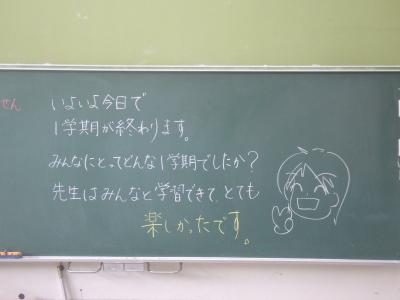 せん
いよいよ今日で
1学期が終わります。
みんなにとってどんな1学期でしたか？
先生はみんなと学習できて、とても
楽しかったです。